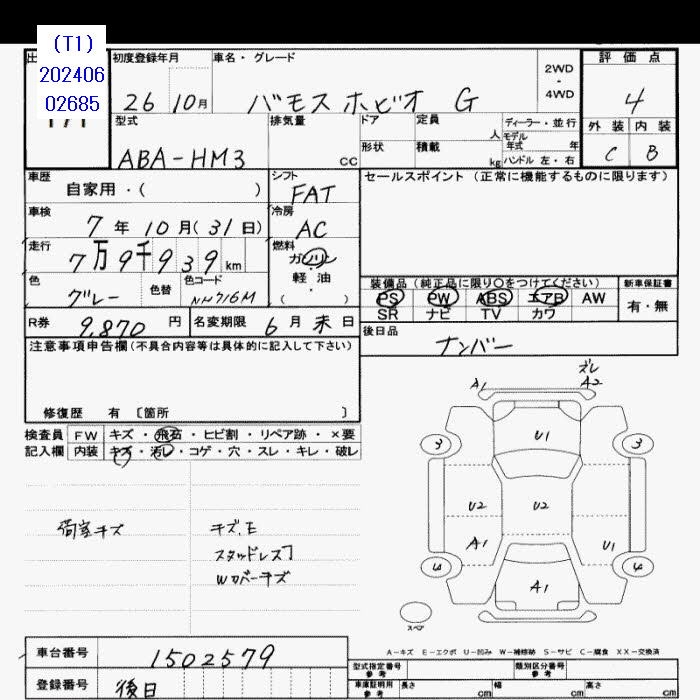 (T1)
202406
02685
初度登録年月
26 10月
車名・グレード
バモスホビオ G
2WD
-
4WD
評価点
4
外装 内装
C B
型式
ABA-HM3
排気量
CC
ドア
形状
定員
人
積載
kg
ディーラー・並行
モデル
年式 年
ハンドル 左・右
車歴
自家用・( )
シフト
FAT
セールスポイント (正常に機能するものに限ります)
車検
7年10月(31日)
冷房
AC
走行
7万9千939km
燃料
ガソリン
・
軽油
( )
色
グレー
色替
色コード
NH716M
装備品(純正品に限り〇をつけてください)
PS PW ABS エアB AW
SR ナビ TV カワ
新車保証書
有・無
R券
9,870円
名変期限
6月末日
後日品
ナンバー
注意事項申告欄(不具合内容等は具体的に記入して下さい)
修復歴 有〔箇所 〕
検査員
記入欄
FW キズ・飛石・ヒビ割・リペア跡・×要
内装 キズ・汚レ・コゲ・穴・スレ・キレ・破レ
荷室キズ
キズ、E
スタッドレス
Wカバーキズ
A1
ズレ
A2
3
U1
3
U2
U2
A1
U1
4
A1
4
スペア
A-キズ E-エクボ U-凹み W-補修跡 S-サビ C-腐食 XX-交換済
車台番号
1502579
登録番号
後日
型式指定番号
参考
類別区分番号
参考
車庫証明用
参考
長さ cm
幅 cm
高さ cm